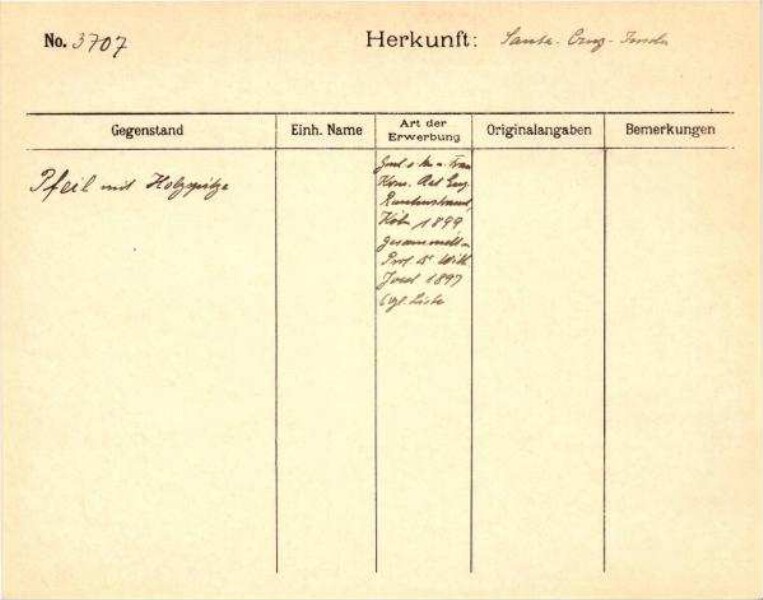 No. 3707 Herkunft: Santa-Cruz-Inseln
Gegenstand Einh. Name Art der Erwerbung Originalangaben Bemerkungen
Pfeil mit Holzspitze
Frau
Rautenstrauch,
1899
gesammelt v.
Prof. Dr. Wilh.
Joest 1897
(vgl. Liste